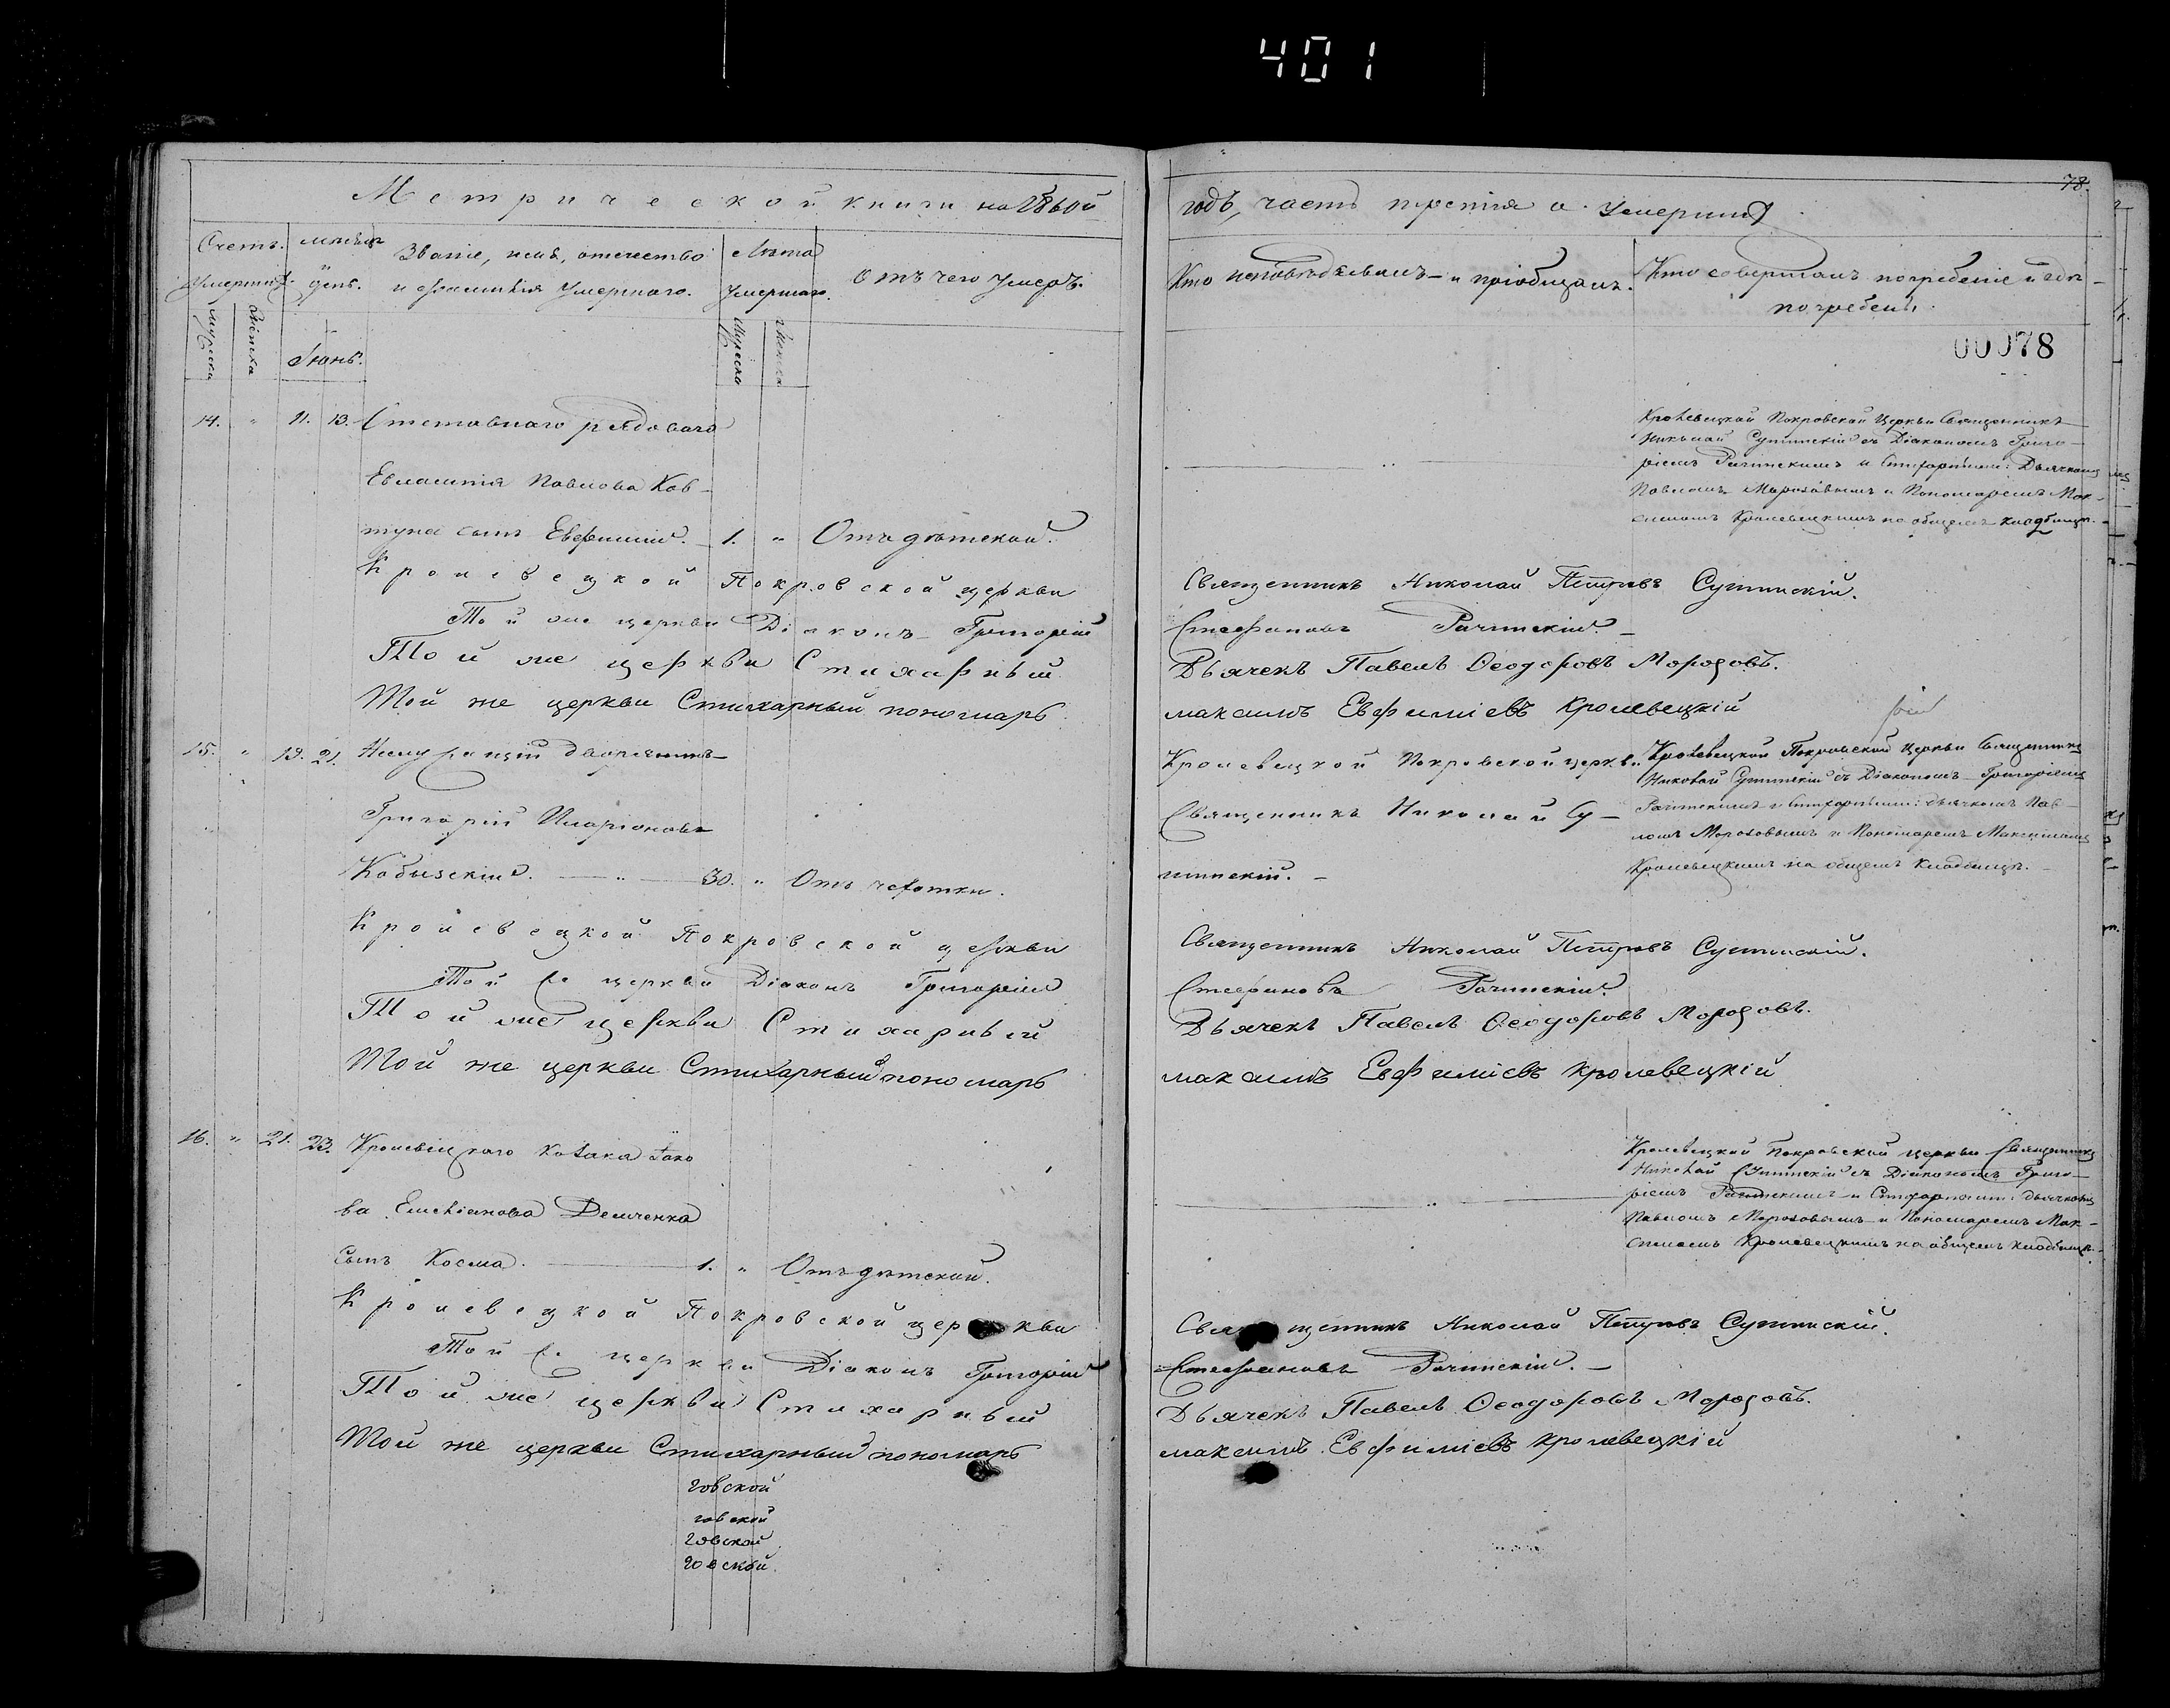 401
Метрической книги на 1860й
годъ, часть третія о умершихъ
78.
Счетъ умершихъ.
мѣсяцъ и день.
Званіе, имя, отчество и фамилія умершаго.
Лѣта умершаго.
Отъ чего умеръ.
Кто исповѣдывалъ и пріобщалъ.
Кто совершалъ погребеніе и гдѣ погребены.
Мужска
Женска
Іюнь.
Мужска
Женска
00078
14. " 11. 13. Отставнаго рядоваго
Евлампія Павлова Ков-
туна сынъ Евфимій. 1. " Отъ дѣтской.
Кролевецкой Покровской Церкви Священникъ
Николай Сутинскій съ Діакономъ Григо-
ріемъ Рачинскимъ и Стихарными: Дьячкомъ
Павломъ Морозовымъ и Пономаремъ Мак-
симомъ Кролевецкимъ на общемъ кладбищѣ.
Кролевецкой Покровской церкви Священникъ Николай Петровъ Сутинскій.
Той же церкви Діаконъ Григорій Стефановъ Рачинскій.
Той же церкви Стихарный Дьячекъ Павелъ Ѳеодоровъ Морозовъ.
Той же церкви Стихарный пономарь максимъ Евфиміевъ Кролевецкій
15. " 19. 21. дворянинъ
Григорій Иларіоновъ
Кобызскій. " 30. " Отъ чахотки.
Кролевецкой Покровской церкви
Священникъ Николай Су-
тинскій.
Кролевецкой Покровской Церкви Священникъ
Николай Сутинскій съ Діакономъ Григоріемъ
Рачинскимъ и Стихарными: дьячкомъ Пав-
ломъ Морозовымъ и Пономаремъ Максимомъ
Кролевецкимъ на общемъ кладбищѣ.
Кролевецкой Покровской церкви Священникъ Николай Петровъ Сутинскій.
Той же церкви Діаконъ Григорій Стефановъ Рачинскій.
Той же церкви Стихарный Дьячекъ Павелъ Ѳеодоровъ Морозовъ.
Той же церкви Стихарный пономарь максимъ Евфиміевъ Кролевецкій
16. " 21. 23. Кролевецкаго Козака Іако
ва Емельянова Демченка
сынъ Косма. 1. " Отъ дѣтской.
Кролевецкой Покровской церкви Священникъ
Николай Сутинскій съ Діакономъ Григо-
ріемъ Рачинскимъ и Стихарными: дьячкомъ
Павломъ Морозовымъ и Пономаремъ Мак-
симомъ Кролевецкимъ на общемъ кладбищѣ.
Кролевецкой Покровской церкви Священникъ Николай Петровъ Сутинскій.
Той же церкви Діаконъ Григорій Стефановъ Рачинскій.
Той же церкви Стихарный Дьячекъ Павелъ Ѳеодоровъ Морозовъ.
Той же церкви Стихарный пономарь максимъ Евфиміевъ Кролевецкій
говской
говской
говской
говской